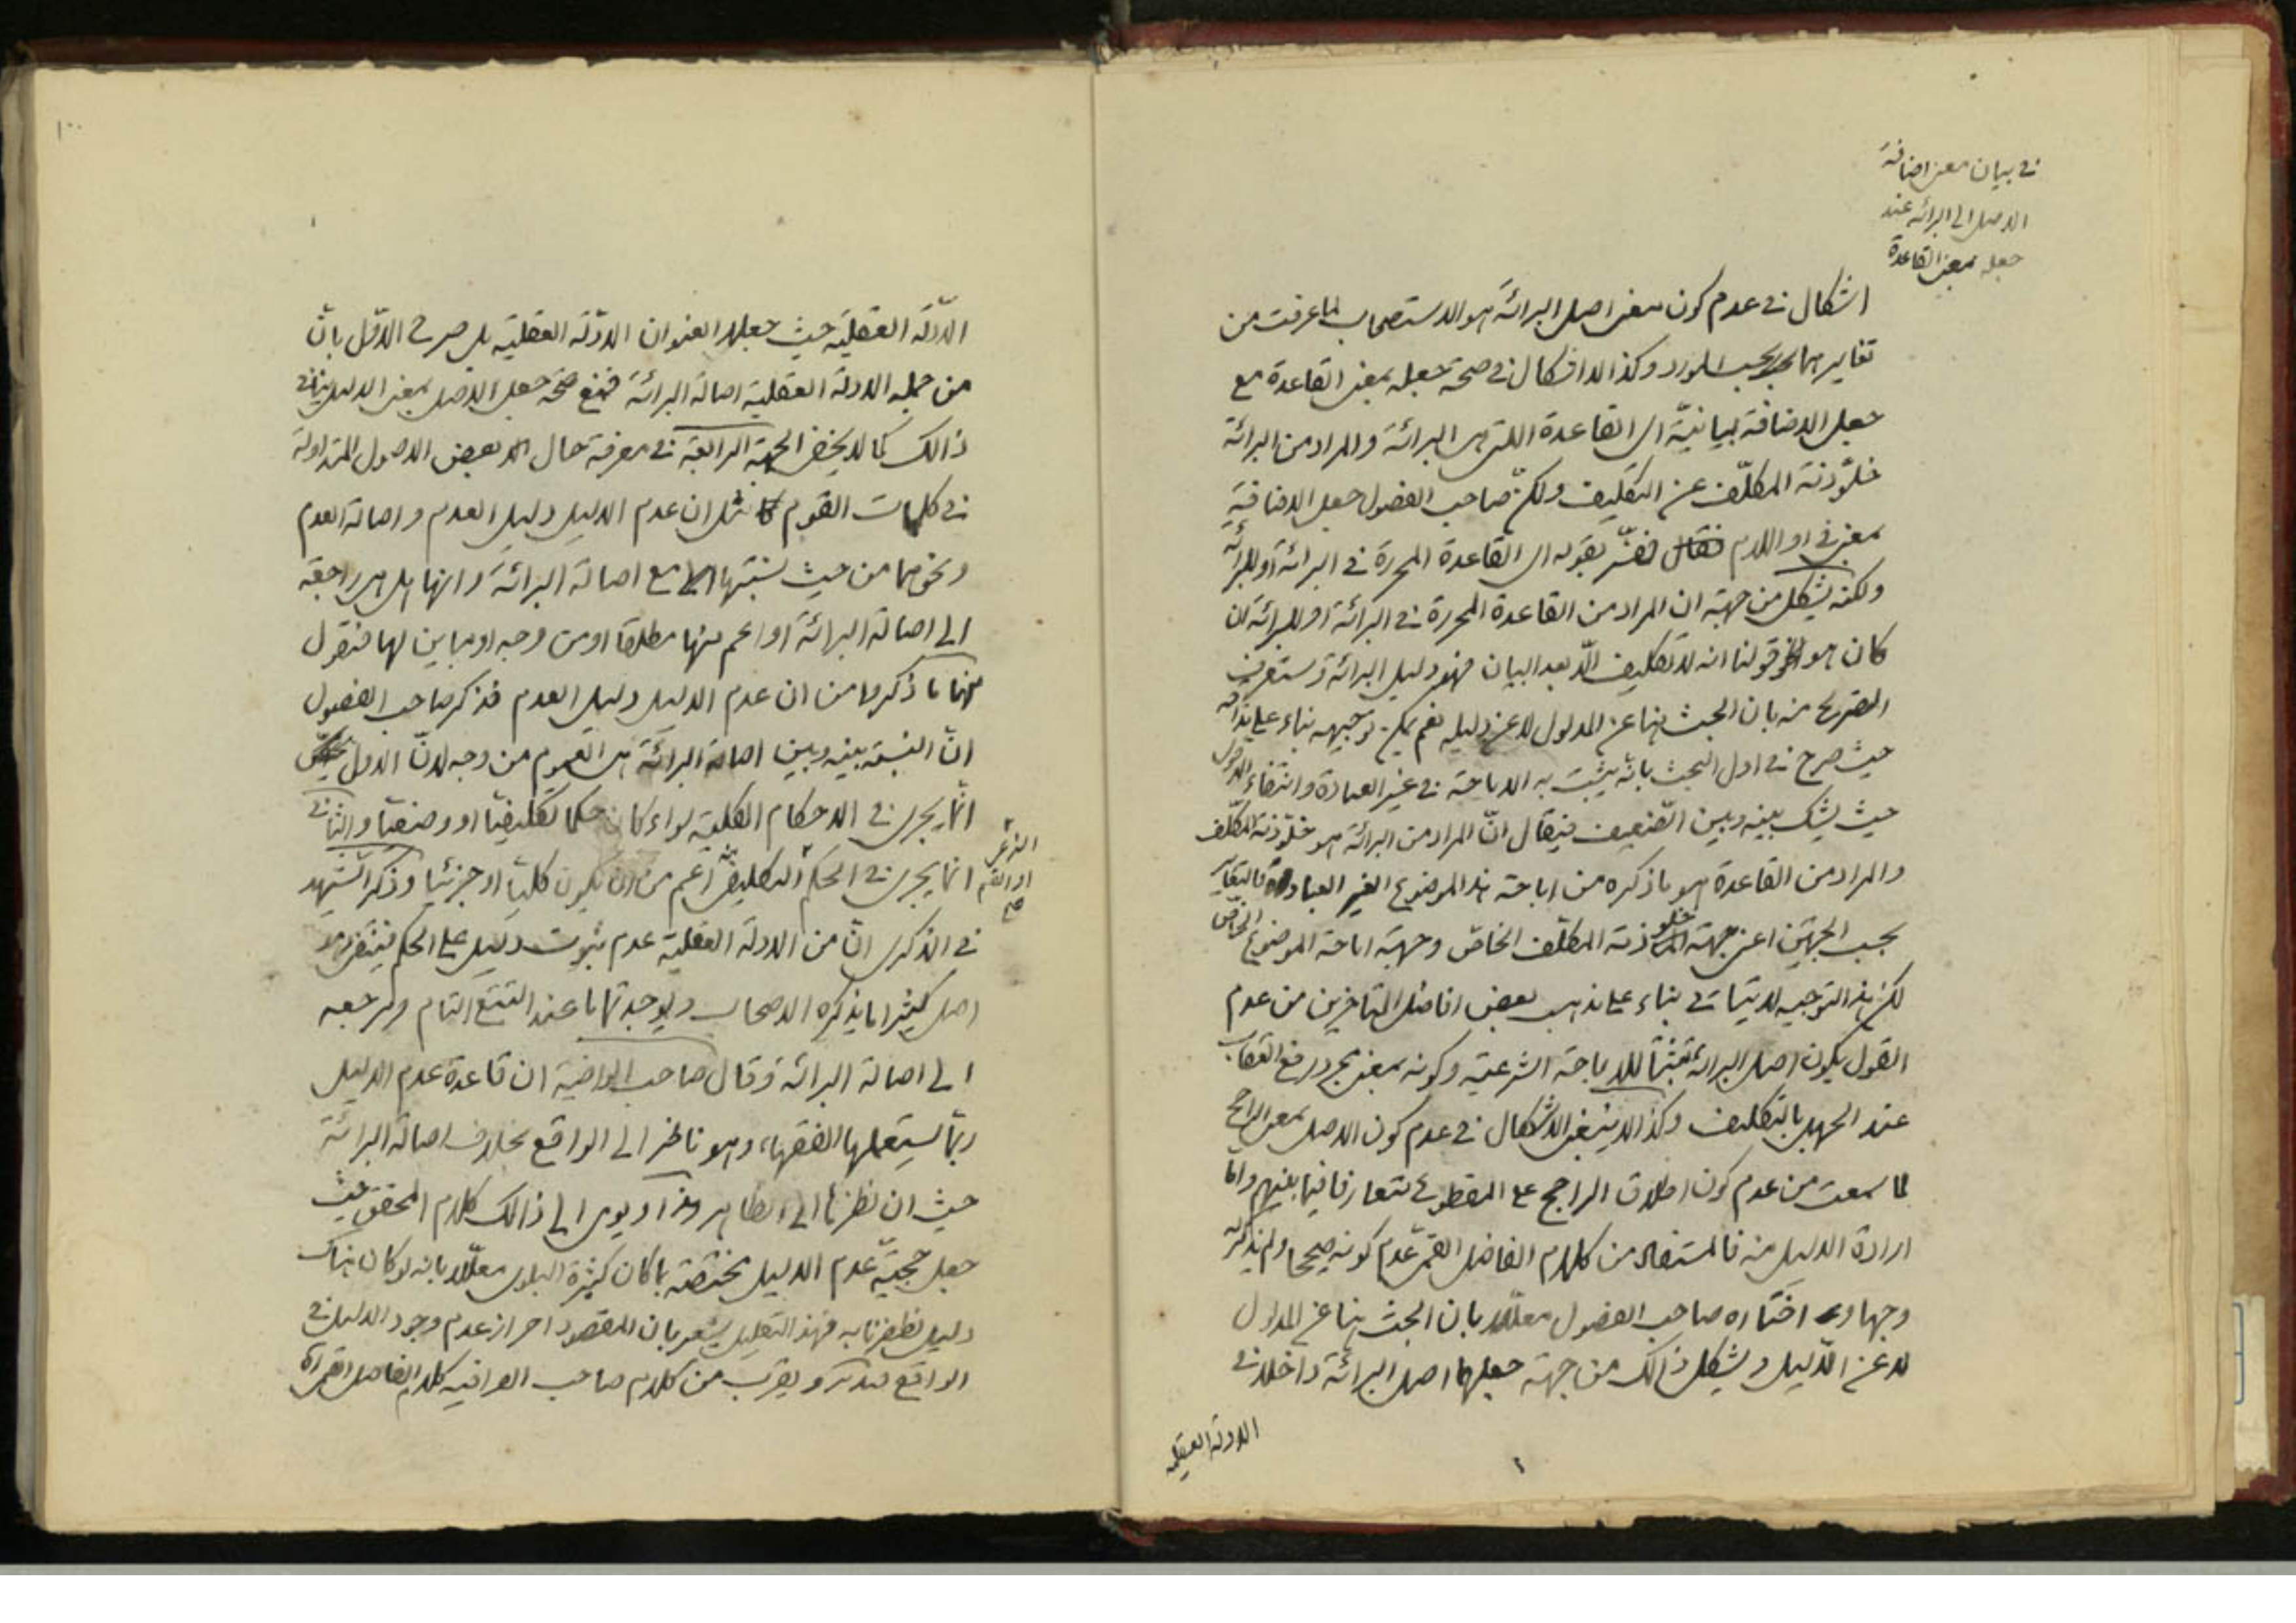 في بيان معنى اضافة
الاصل الى البرائة عند
جعله بمعنى القاعدة
اشكال في عدم كون معنى اصل البرائة هو الاستصحاب لما عرفت من
تغايرهما بحسب المورد وكذا لا اشكال في صحة جعله بمعنى القاعدة مع
جعل الاضافة بيانيّة اى القاعدة التي هي البرائة والمراد من البرائة
خلوّ ذمة المكلّف عن التكليف ولكنّ صاحب الفصول جعل الاضافة
بمعنى في او اللام ففسّر بقوله اى القاعدة المحررة في البرائة او للبرائة
ولكنه يشكل من جهة ان المراد من القاعدة المحررة في البرائة او للبرائة ان
كان هو قولنا انه لا تكليف الّا بعد البيان فهو دليل البرائة وستعرف
التصريح منه بان البحث هنا عن المدلول لا عن دليله نعم يمكن توجيهه بناء على مذاقه
حيث صرح في اول البحث بانّه يثبت به الاباحة في غير العبادة وانتفاء الاول
حيث يشك بينه وبين الضعيف فيقال انّ المراد من البرائة هو خلوّ ذمة المكلّف
والمراد من القاعدة هو ما ذكره من اباحة هذا الموضوع الغير العبادة فالتغاير
بحسب الجهتين اعنى جهة خلو ذمة المكلّف الخاصّ وجهة اباحة الموضوع الخاصّ
لكن هذا التوجيه لا يتاتى بناء على مذهب بعض افاضل المتاخرين من عدم
القول بكون اصل البرائة مثبتا للاباحة الشرعية وكونه بمعنى مجرد رفع العقاب
عند الجهل بالتكليف وكذا لا ينبغي الاشكال في عدم كون الاصل بمعنى الراجح
لما سمعت من عدم كون اطلاق الراجح على المقطوع متعارفا فيما بينهم واما
ارادة الدليل منه فالمستفاد من كلام الفاضل القمىّ عدم كونه صحيحا ولم يذكر له
وجها و اختاره صاحب الفصول معلّلا بان البحث هنا عن المدلول
لا عن الدّليل ويشكل ذالك من جهة جعلهم اصل البرائة داخلا في
الادلة العقلية
١٠٠
الادلّة العقليّة حيث جعلوا العنوان الادلّة العقلية بل صرح الاوّل بانّ
من جملة الادلة العقلية اصالة البرائة فمنع صحّة جعل الاصل بمعنى الدليل ينافى
ذالك كما لا يخفى الجهة الرابعة في معرفة حال بعض الاصول المتداولة
في كلمات القوم مثل ان عدم الدليل دليل العدم واصالة العدم
ونحوهما من حيث نسبتها مع اصالة البرائة وانها هل هي راجعة
الى اصالة البرائة او اعم منها مطلقا او من وجه او مباين لها فنقول
منها ما ذكروا من ان عدم الدليل دليل العدم فذكر صاحب الفصول
انّ النسبة بينه وبين اصالة البرائة هى العموم من وجه لانّ الاول
انّما يجرى في الاحكام الكلية سواء كان حكما تكليفيّا او وضعيّا والثانى
انما يجرى في الحكم التكليفى اعم من ان يكون كليّا او جزئيا وذكر الشهيد
في الذكرى انّ من الادلة العقلية عدم ثبوت دليل على الحكم فينتفى
اصل كثيرا ما يذكره الاصحاب ويوجد تماما عند التتبع التام ومرجعه
الى اصالة البرائة وقال صاحب الوافية ان قاعدة عدم الدليل
ربّما يستعملها الفقهاء وهو ناظر الى الواقع بخلاف اصالة البرائة
حيث ان نظرها الى الظاهر ويومى الى ذالك كلام المحقق حيث
جعل حجيّة عدم الدليل مختصّة بما كان كثيرة البلوى معلّلا بانه لو كان هناك
دليل لظفرنا به فهذا التعليل يشعر بان المقصود احراز عدم وجود الدليل في
الواقع فتدبر ويقرب من كلام صاحب الوافيه كلام الفاضل القمى